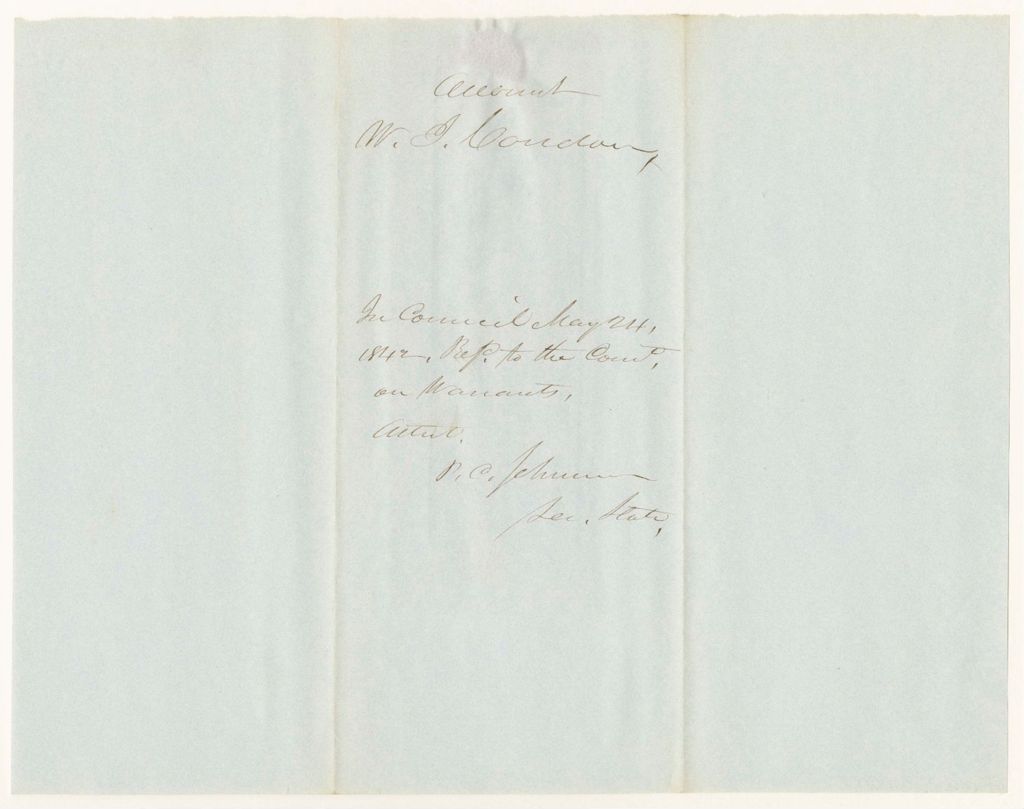 Account
W. J. Condon,
In Council May 24,
1842, Ref. to the Comt.
on Warrants,
Attest.
P. C. Johnson
Sec. State,